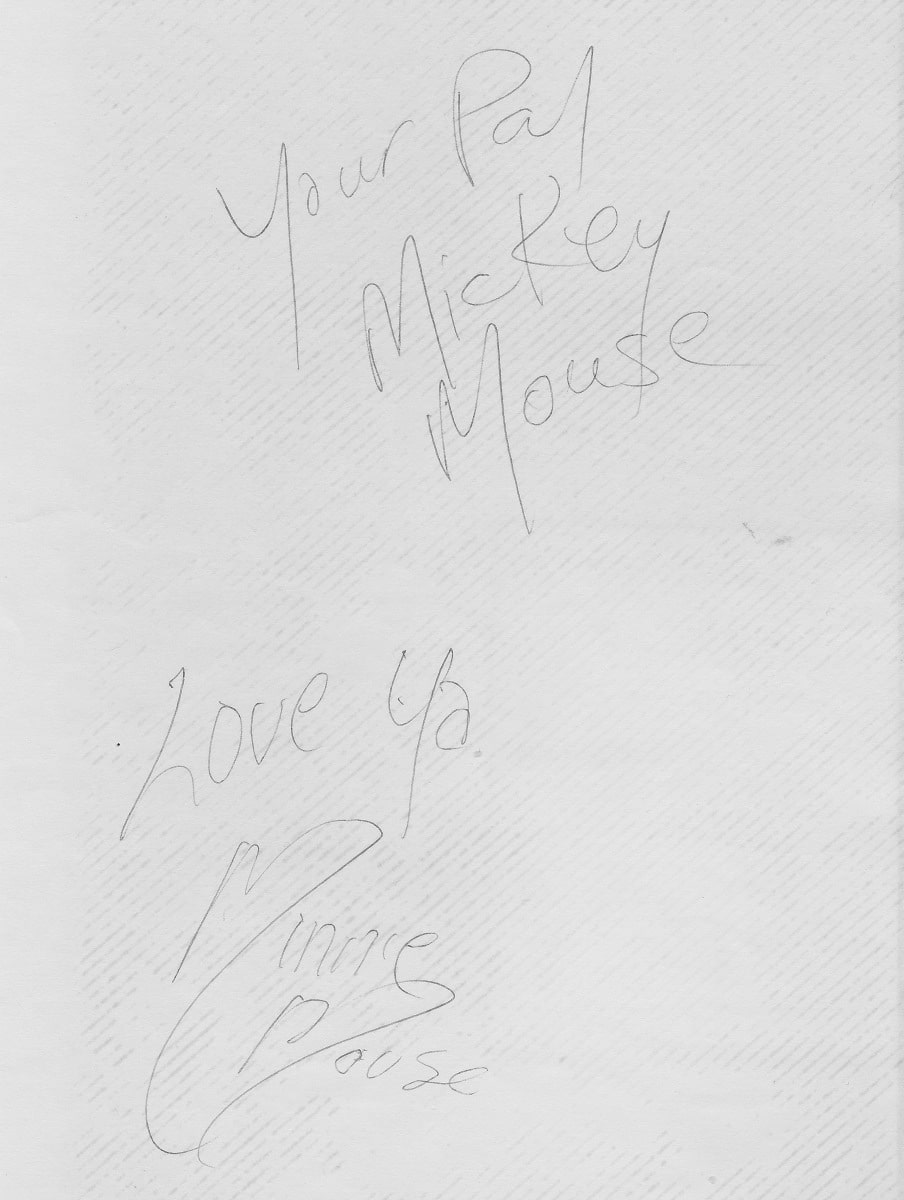 Your Pal
Mickey
Mouse
Love Ya
Minnie
Mouse